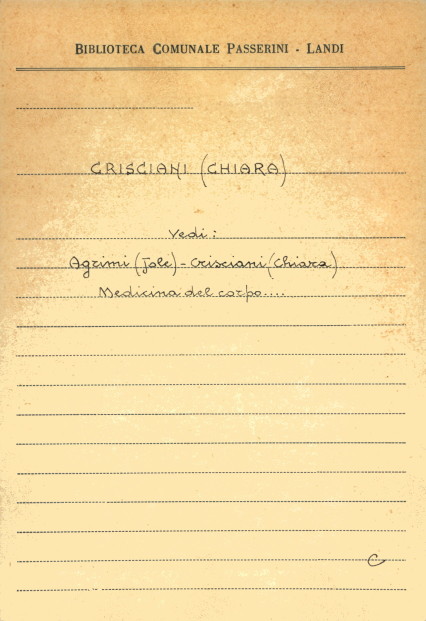 BIBLIOTECA COMUNALE PASSERINI - LANDI
CRISCIANI (CHIARA)
Vedi:
Agrimi (Jole) - Crisciani (Chiara)
Medicina del corpo....
C